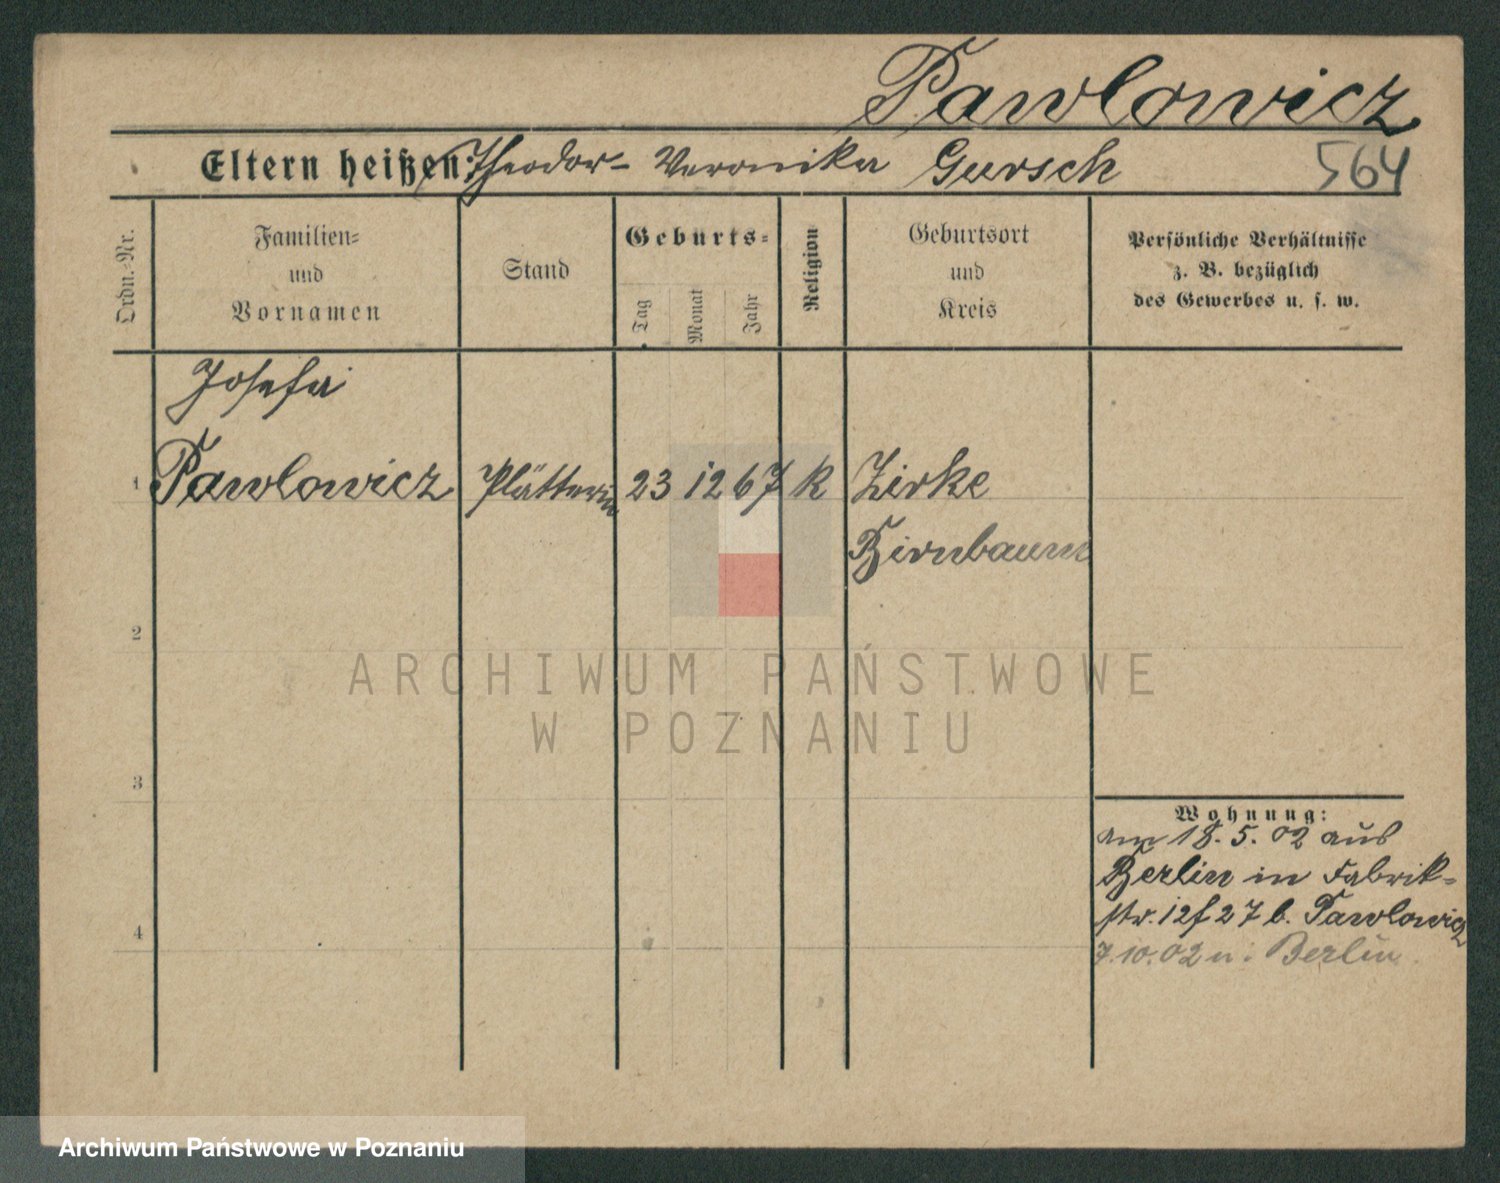 Pawlowicz
Eltern heißen: Theodor - Veronika Gursch
564
Ordn.-Nr.
Familien-
und
Vornamen
Stand
Geburts-
Tag
Monat
Jahr
Religion
Geburtsort
und
Kreis
Persönliche Verhältnisse
z. B. bezüglich
des Gewerbes u. s. w.
Josefa
1 Pawlowicz Plätterin 23 12 67 k Zirke
Birnbaum
2
ARCHIWUM PAŃSTWOWE
W POZNANIU
3
Wohnung:
am 18. 5. 02 aus
Berlin in Fabrik-
str. 12f 27 b. Pawlowicz
4
7.10.02 n. Berlin.
Archiwum Państwowe w Poznaniu